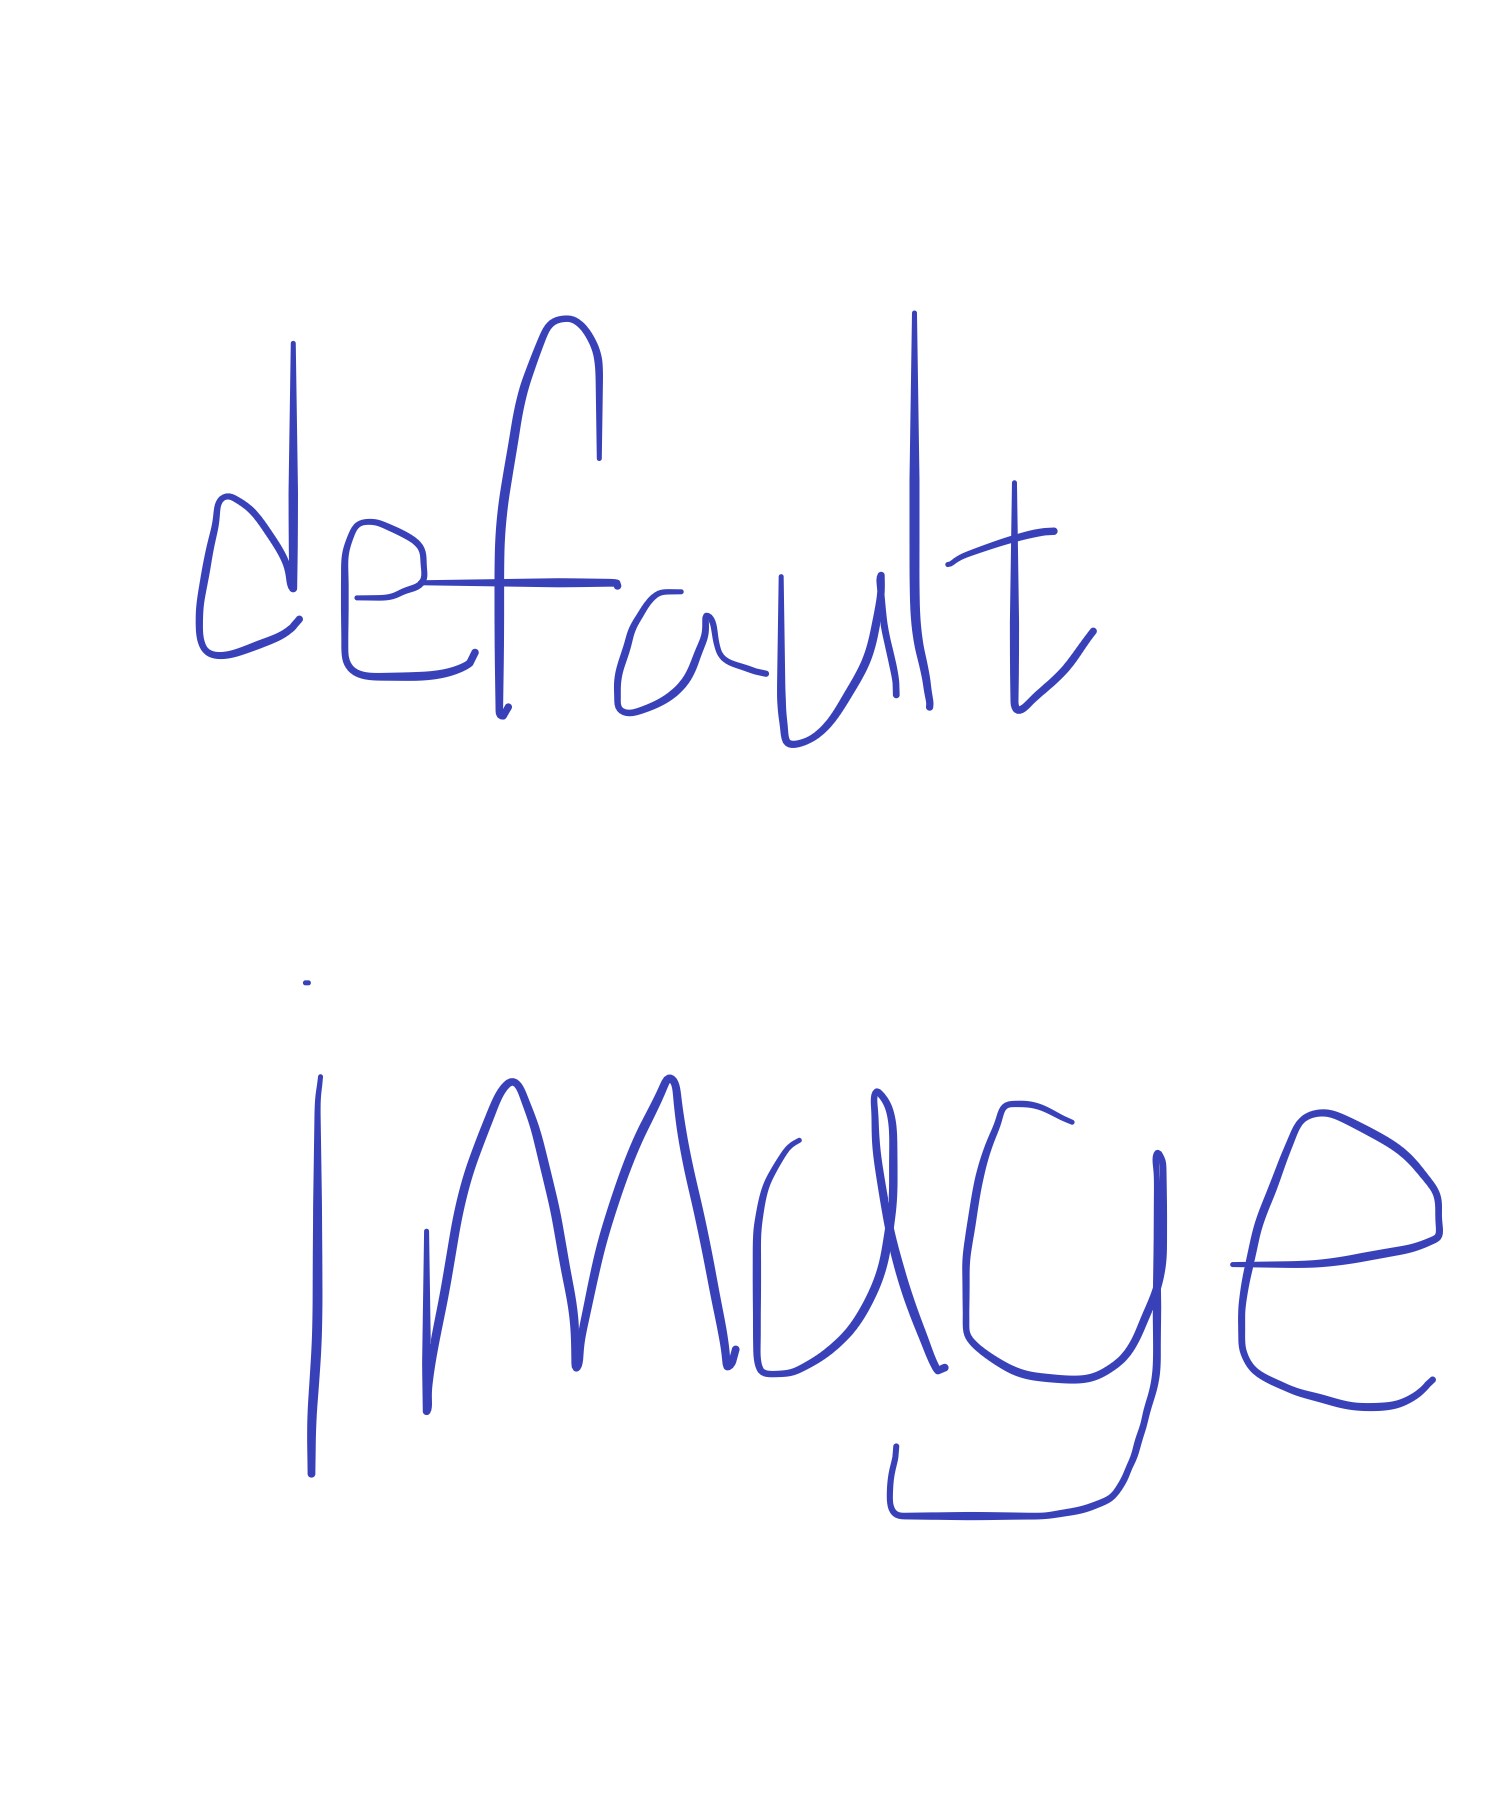 default
image